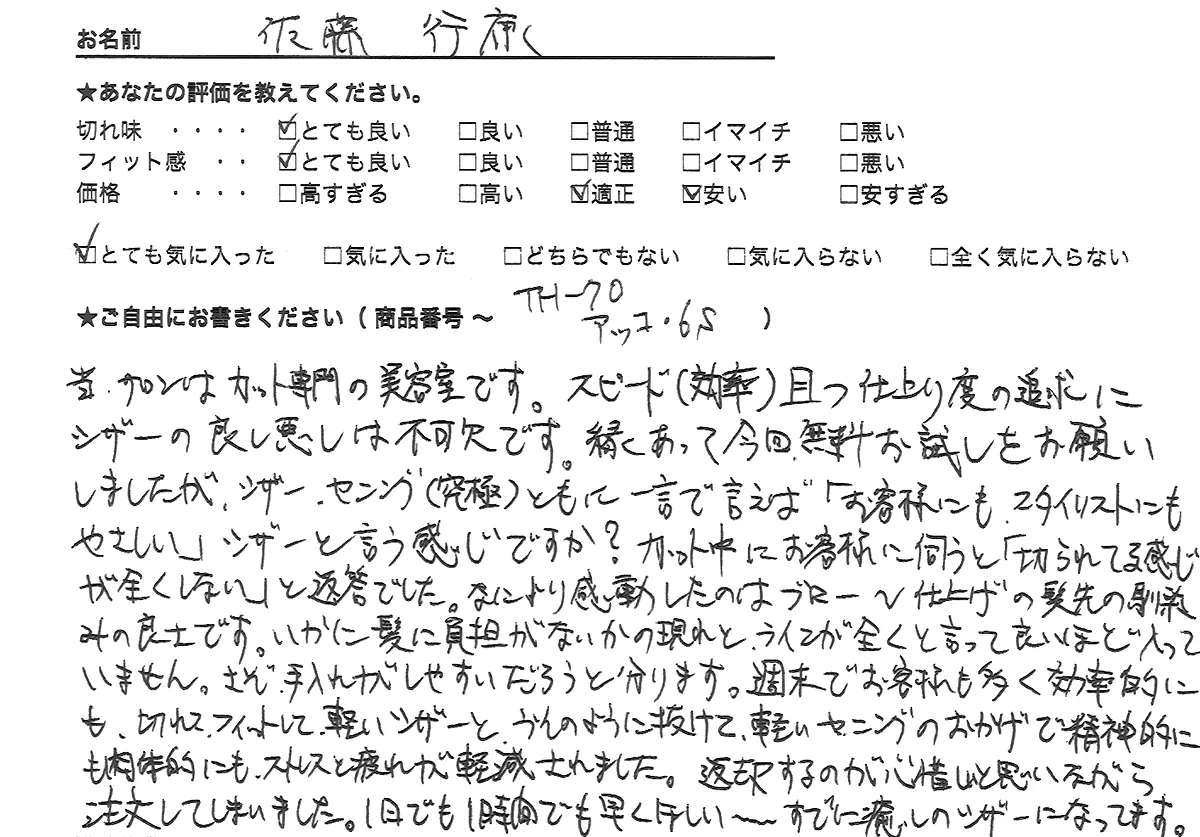 お名前 佐藤 行康
★あなたの評価を教えてください。
切れ味 ・・・・ ☑とても良い □良い □普通 □イマイチ □悪い
フィット感 ・・ ☑とても良い □良い □普通 □イマイチ □悪い
価格 ・・・・ □高すぎる □高い ☑適正 ☑安い □安すぎる
☑とても気に入った □気に入った □どちらでもない □気に入らない □全く気に入らない
TH-70
★ご自由にお書きください（商品番号～ アッコ・6S ）
当、サロンはカット専門の美容室です。スピード(効率)且つ仕上り度の追求に
シザーの良し悪しは不可欠です。縁あって今回、無料お試しをお願い
しましたが、シザー、セニング(究極)ともに一言で言えば「お客様にも、スタイリストにも
やさしい」シザーと言う感じですか？カット中にお客様に伺うと「切られてる感じ
が全くしない」と返答でした。なにより感動したのはブロー～仕上げの髪先の馴染
みの良さです。いかに髪に負担がないかの現れと、ラインが全くと言って良いほど入って
いません。さぞ、手入れがしやすいだろうと分ります。週末でお客様も多く効率的に
も、切れて、フィットして、軽いシザーと、うんのように抜けて、軽いセニングのおかげで精神的に
も肉体的にも、ストレスと疲れが軽減されました。返却するのが心惜しいと思いながら
注文してしまいました。1日でも1時間でも早くほしい〜〜すでに癒しのシザーになってます。